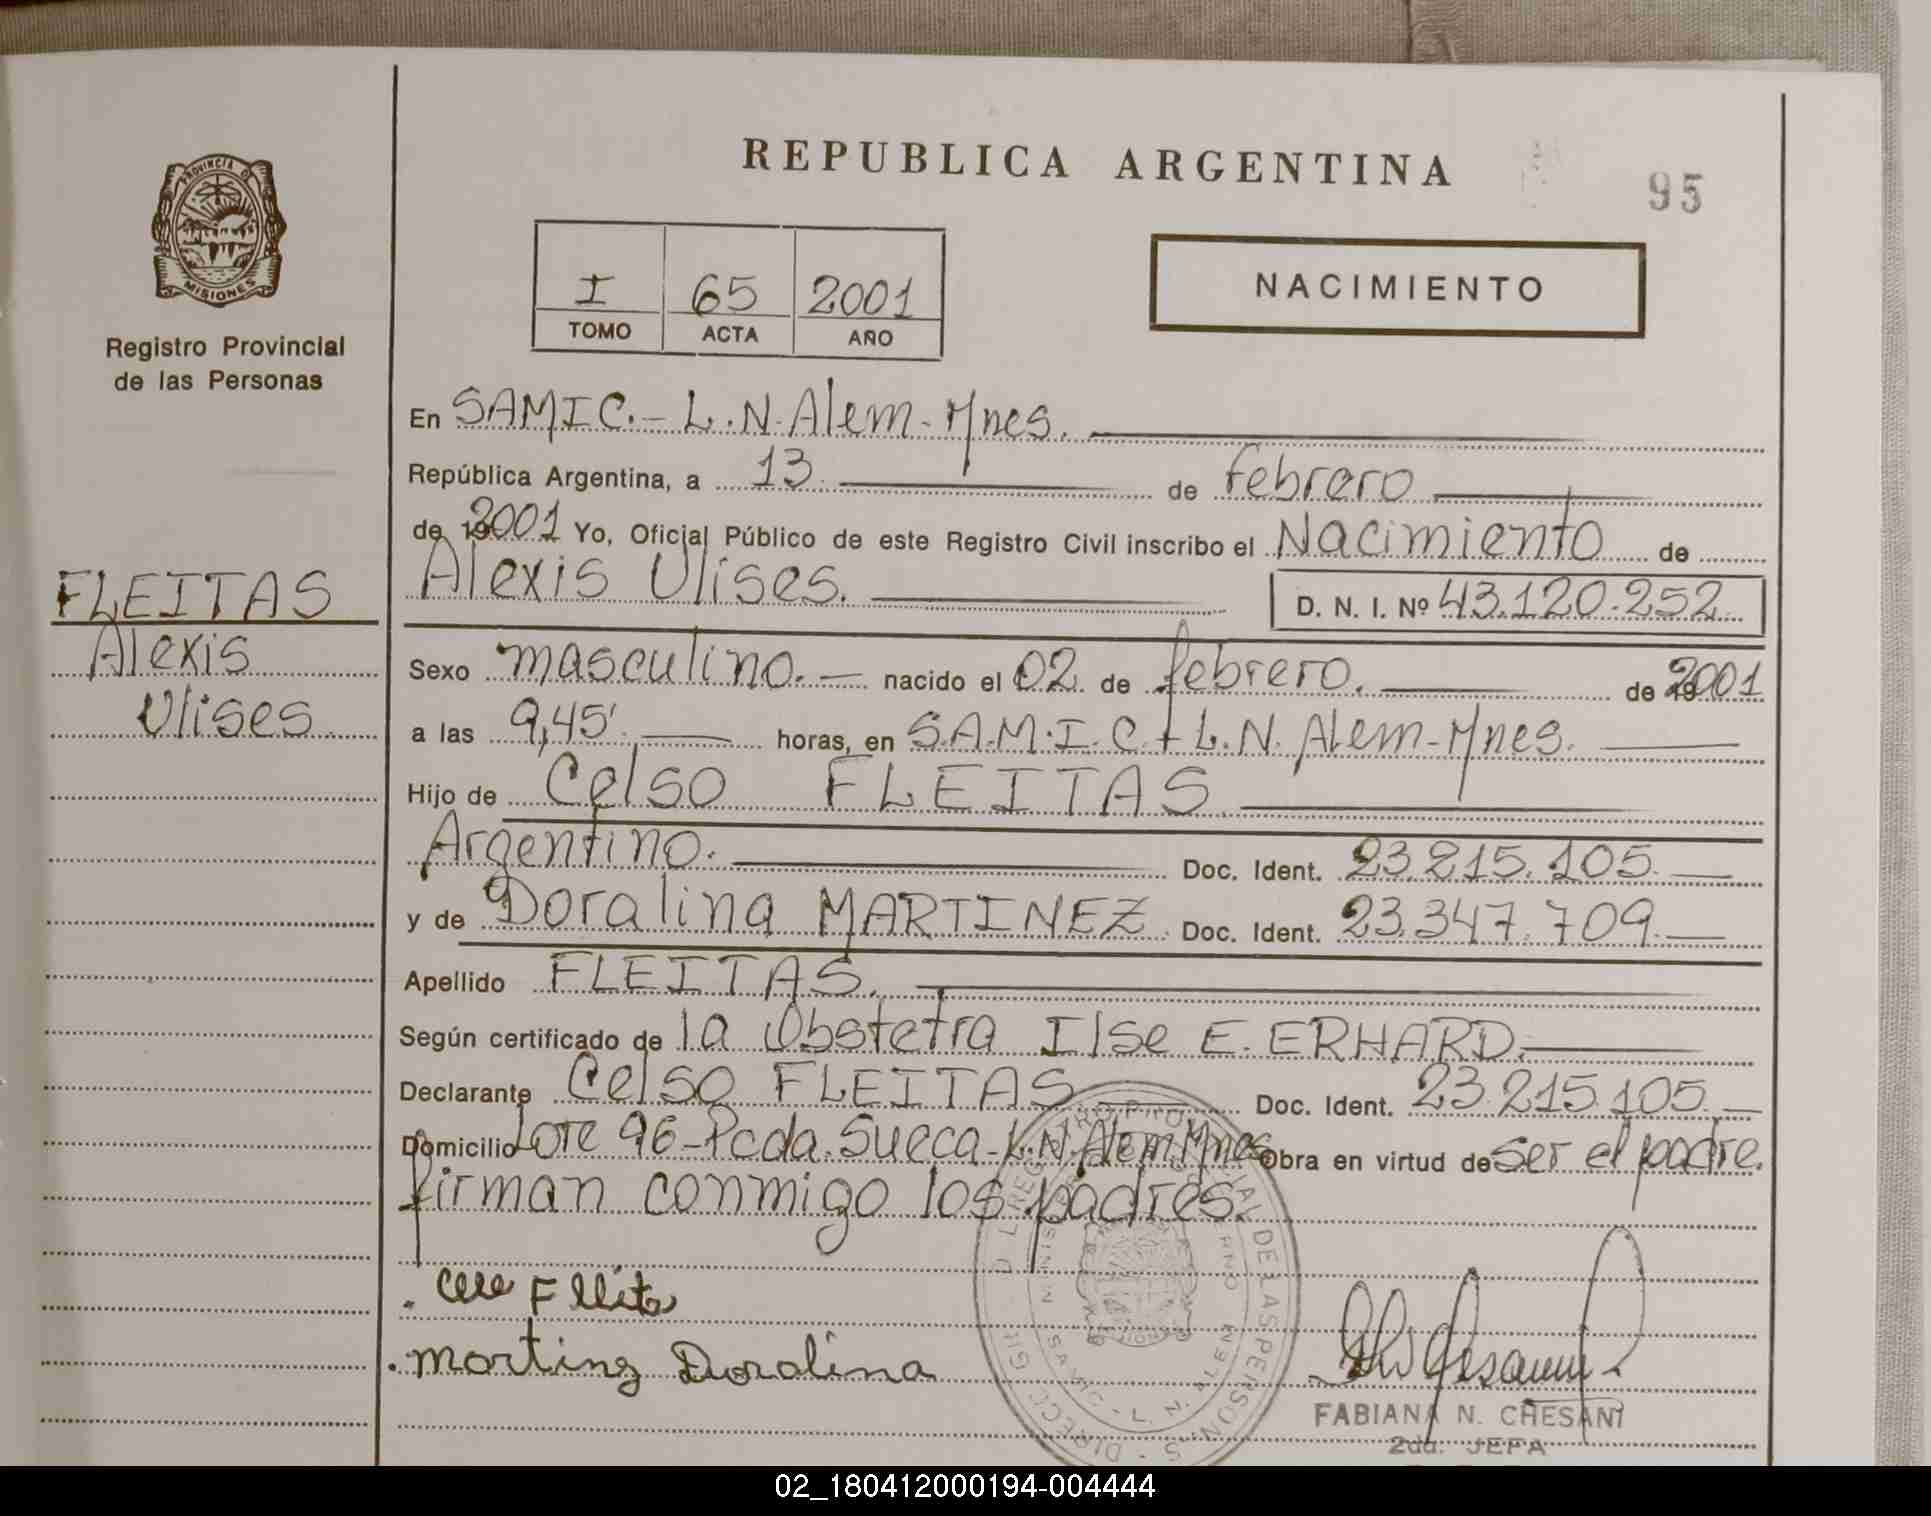 REPUBLICA ARGENTINA
95
PROVINCIA D
MISIONES
Registro Provincial
de las Personas
I 65 2001
TOMO ACTA AÑO
NACIMIENTO
FLEITAS
Alexis
Ulises
En SAMIC.- L.N. Alem - Mnes.
República Argentina, a 13 de febrero
de 192001 Yo, Oficial Público de este Registro Civil inscribo el Nacimiento de
Alexis Ulises. D. N. I. Nº 43.120.252
Sexo masculino. nacido el 02 de febrero. de 192001
a las 9,45' horas, en S.A.M.I.C. - L.N. Alem - Mnes.
Hijo de Celso FLEITAS
Argentino. Doc. Ident. 23.215.105
y de Doralina MARTINEZ Doc. Ident. 23.347.709
Apellido FLEITAS.
Según certificado de la Obstetra Ilse E. ERHARD.
Declarante Celso FLEITAS Doc. Ident. 23.215.105
Domicilio Lote 96 - Pcda. Sueca - L.N. Alem Mnes Obra en virtud de ser el padre.
firman conmigo los padres.
Martinz Doralina
FABIANA N. CHESANI
2da. JEFA
02_180412000194-004444